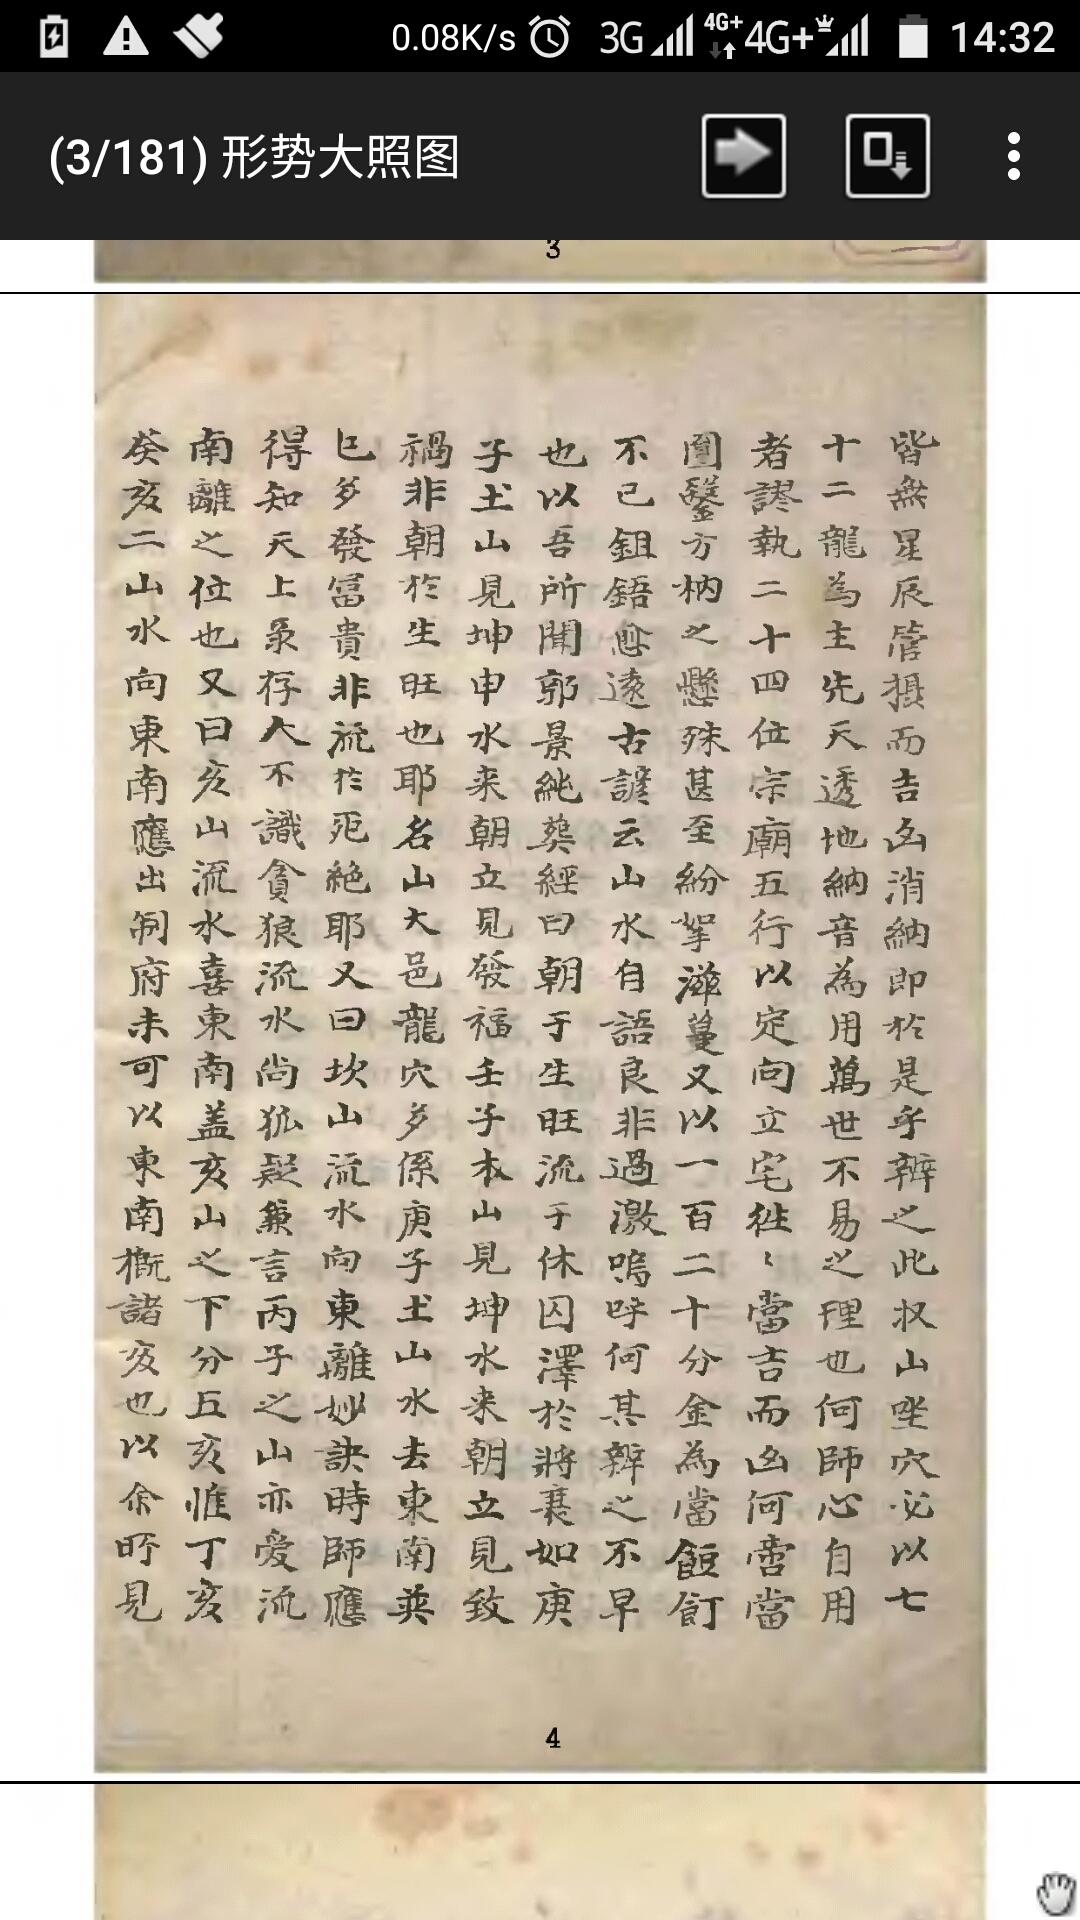 0.08K/s 3G 4G+ 4G+ 14:32
(3/181) 形势大照图
3
皆無星辰管摄而吉凶消納即於是乎辨之此収山坐穴必以七
十二龍為主先天透地納音為用萬世不易之理也何師心自用
者謬執二十四位宗廟五行以定向立宅徃〻當吉而凶何啻當
圓鑿方枘之懸殊甚至紛挐滋蔓又以一百二十分金為當餖飣
不已鉏鋙愈遠古諺云山水自語良非過激嗚呼何其辨之不早
也以吾所聞郭景純葬經曰朝于生旺流于休囚澤於將衰如庚
子土山見坤申水来朝立見發福壬子木山見坤水来朝立見致
禍非朝於生旺也耶名山大邑龍穴多係庚子土山水去東南英
已多發富貴非流於死絶耶又曰坎山流水向東離妙訣時師應
得知天上星存人不識貪狼流水尚狐疑兼言丙子之山亦愛流
南離之位也又曰亥山流水喜東南盖亥山之下分五亥惟丁亥
癸亥二山水向東南應出制府未可以東南槪諸亥也以余所見
4